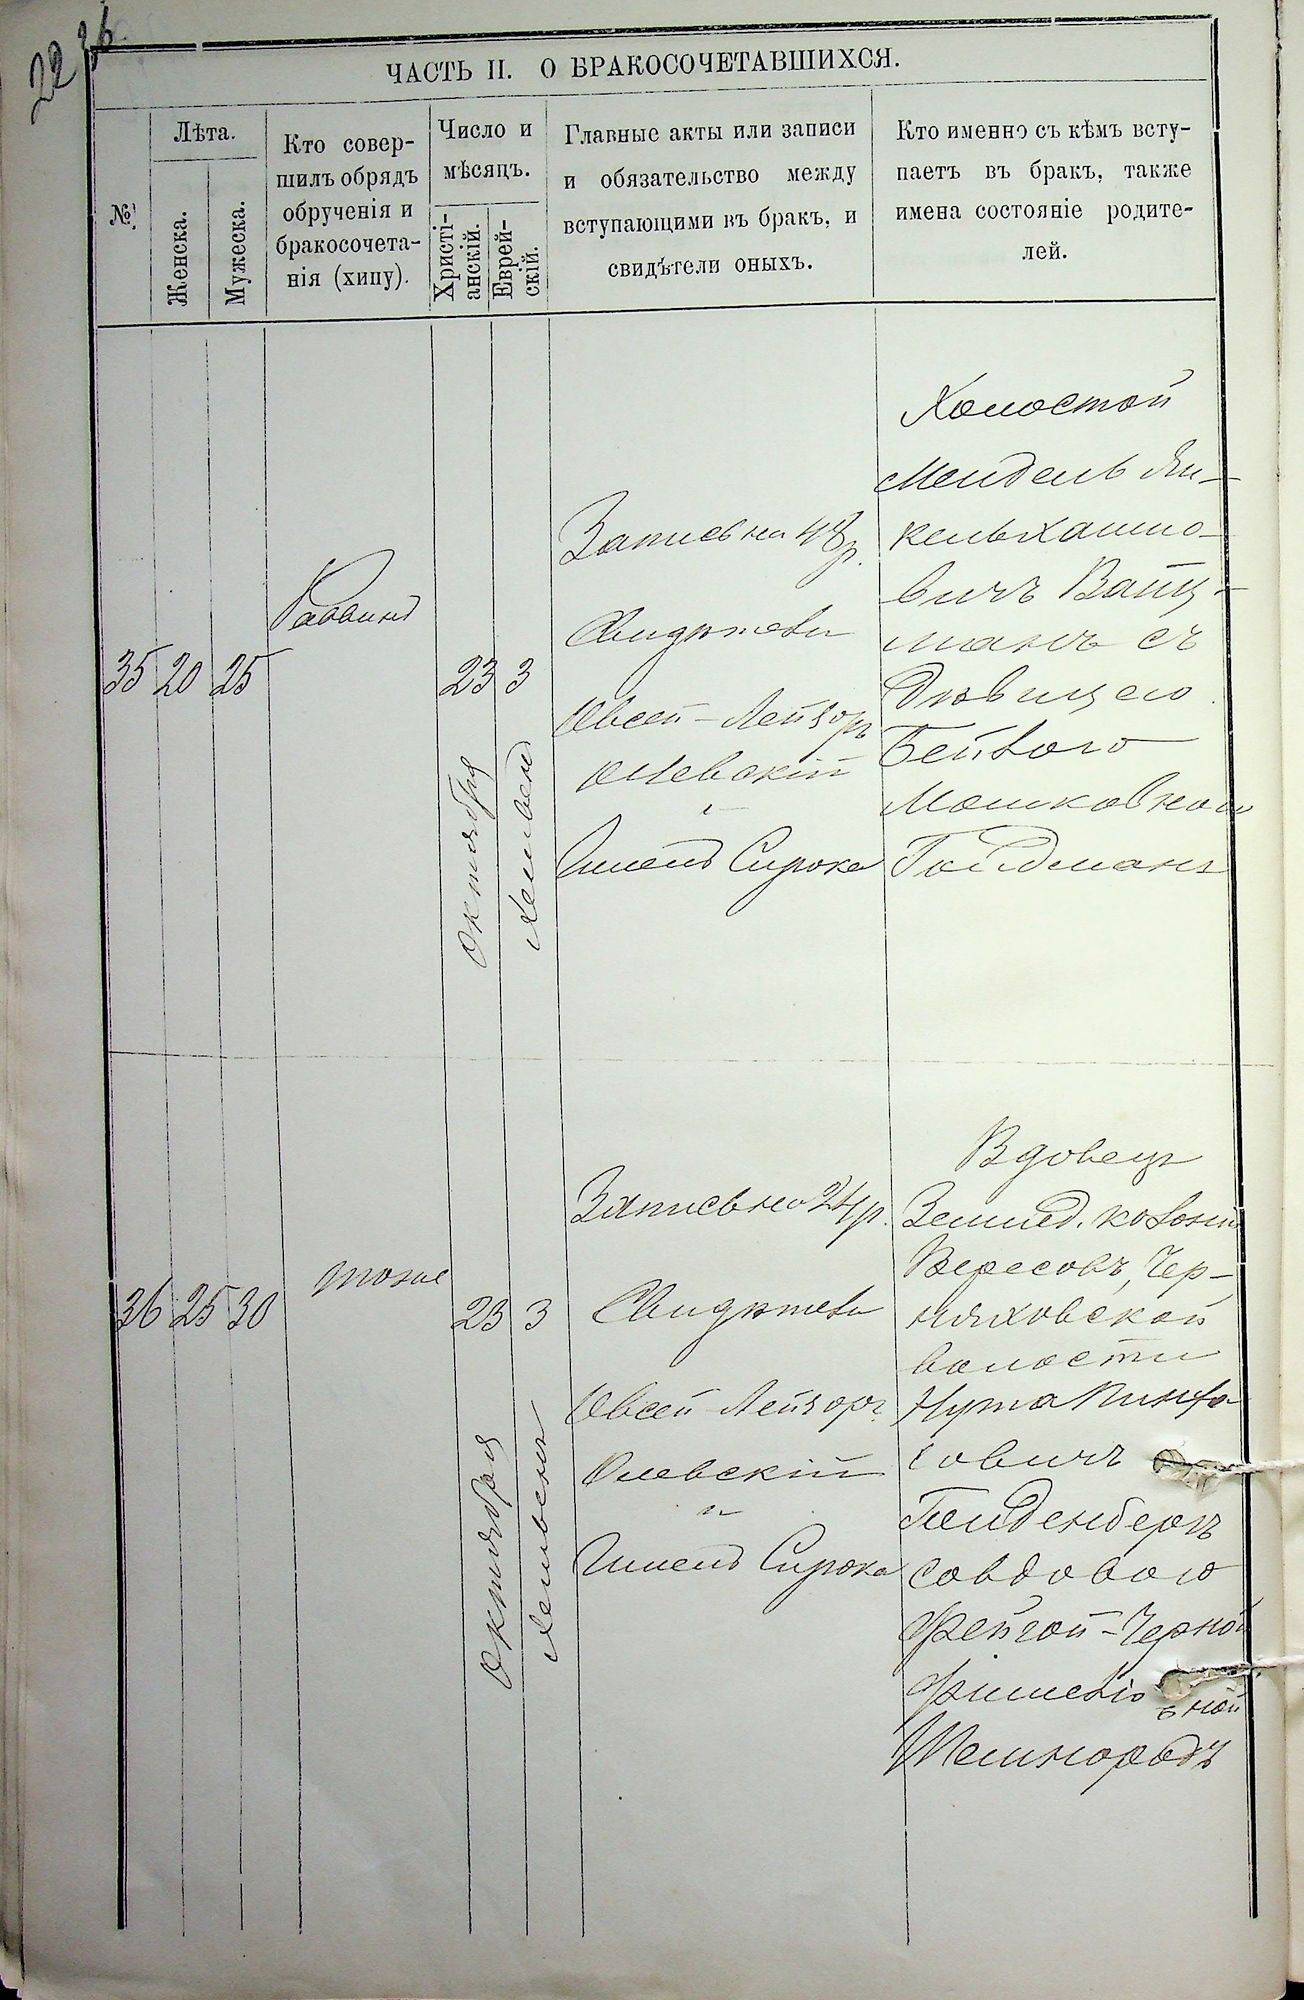 22 36
ЧАСТЬ II. О БРАКОСОЧЕТАВШИХСЯ.
№
Лѣта.
Женска.
Мужеска.
Кто совер-
шилъ обрядъ
обрученія и
бракосочета-
нія (хипу).
Число и
мѣсяцъ.
Христі-
анскій.
Еврей-
скій.
Главные акты или записи
и обязательство между
вступающими въ бракъ, и
свидѣтели оныхъ.
Кто именно съ кѣмъ всту-
паетъ въ бракъ, также
имена состояніе родите-
лей.
35
20
25
Раввинъ
23
Октября
3
Запись на 48 р.
Свидѣтели
Овсей-Лейзоръ
Олевскій
и
Сирока
Холостой
Мендель Ян-
кельхаимо-
вичъ Вайц-
манъ съ
Дѣвицею
Бейлою
Мошковною
Гольдманъ
36
25
30
тоже
23
Октября
3
Запись на 24 р.
Свидѣтели
Овсей Лейзоръ
Олевскій
и
Сирока
Вдовецъ
Землед. колоніи
Вересовъ, Чер-
няховской
волости
Нута Пинха-
совичъ
Гольденбергъ
со вдовою
Фейгой-Черной